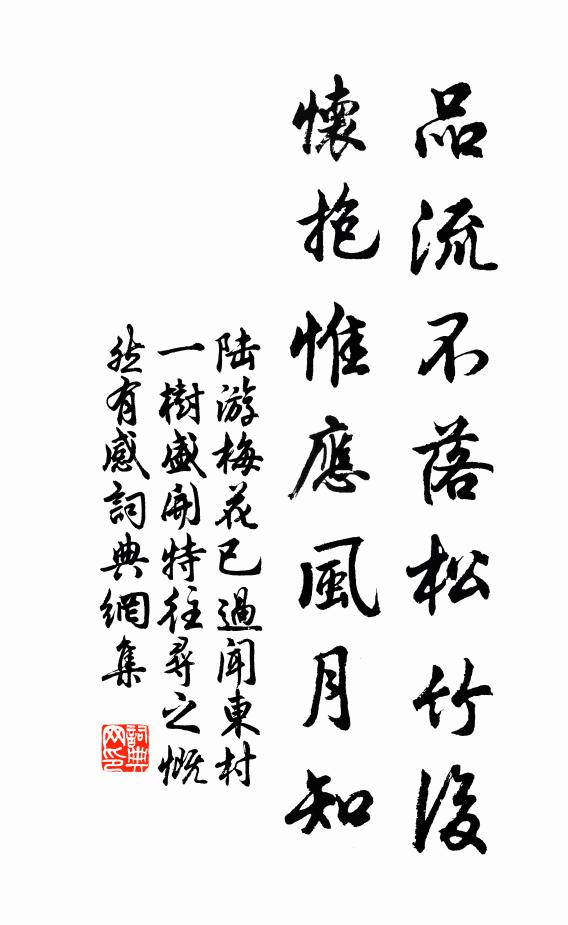 品流不落松竹後
懷抱惟應風月知
陆游梅花已過闻東村
一樹盛開特往尋之慨
然有感詞典網集
詞典網印